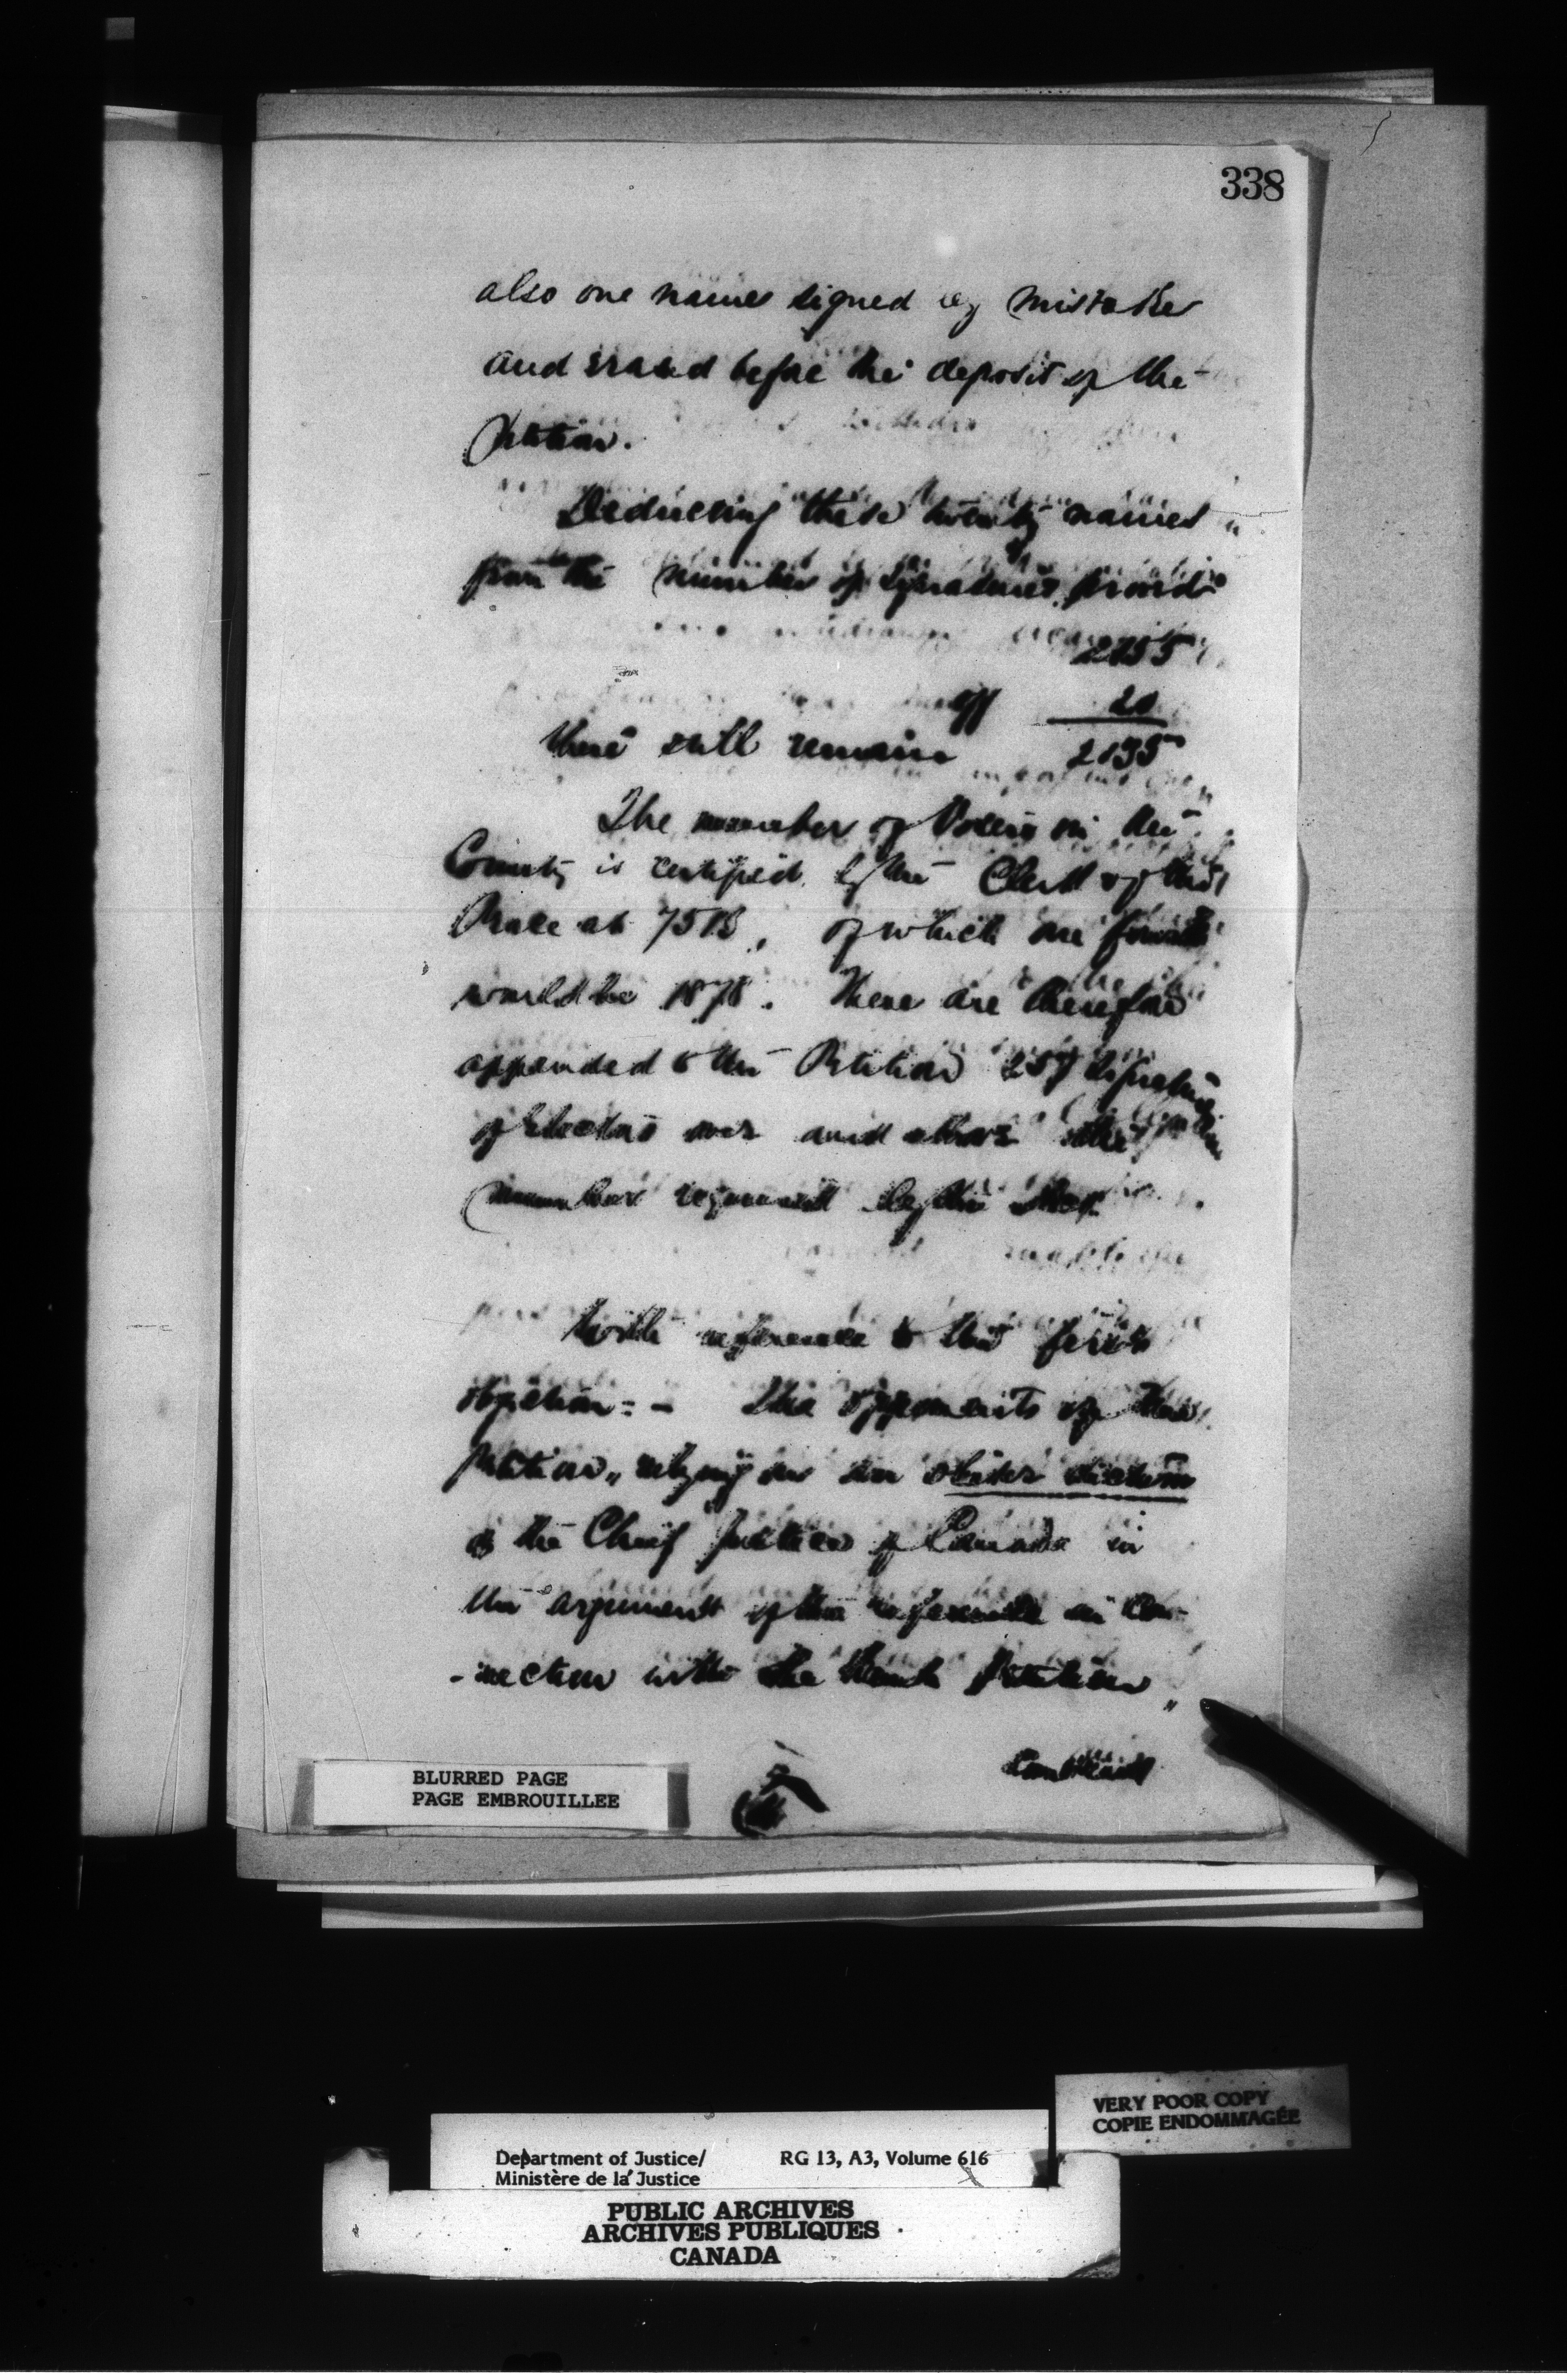 338
also one names signed by mistake
and erased before the deposit of the
Petition.
Deducting these twenty names
from the number of signatures proved
2155
off 20
there still remain 2135
The number of Voters in the
County is certified by the Clerk of the
Peace at 7513, of which one fourth
would be 1878. There are therefore
appended to the Petition 257 signatures
of electors over and above the
number required by the Act.
With reference to the first
objection:- The opponents of the
petition, relying on an obiter dictum
of the Chief Justice of Canada in
the argument of the reference in con-
-nection with the Petition,
BLURRED PAGE
PAGE EMBROUILLEE
VERY POOR COPY
COPIE ENDOMMAGÉE
Department of Justice/ RG 13, A3, Volume 616
Ministère de la Justice
PUBLIC ARCHIVES
ARCHIVES PUBLIQUES
CANADA